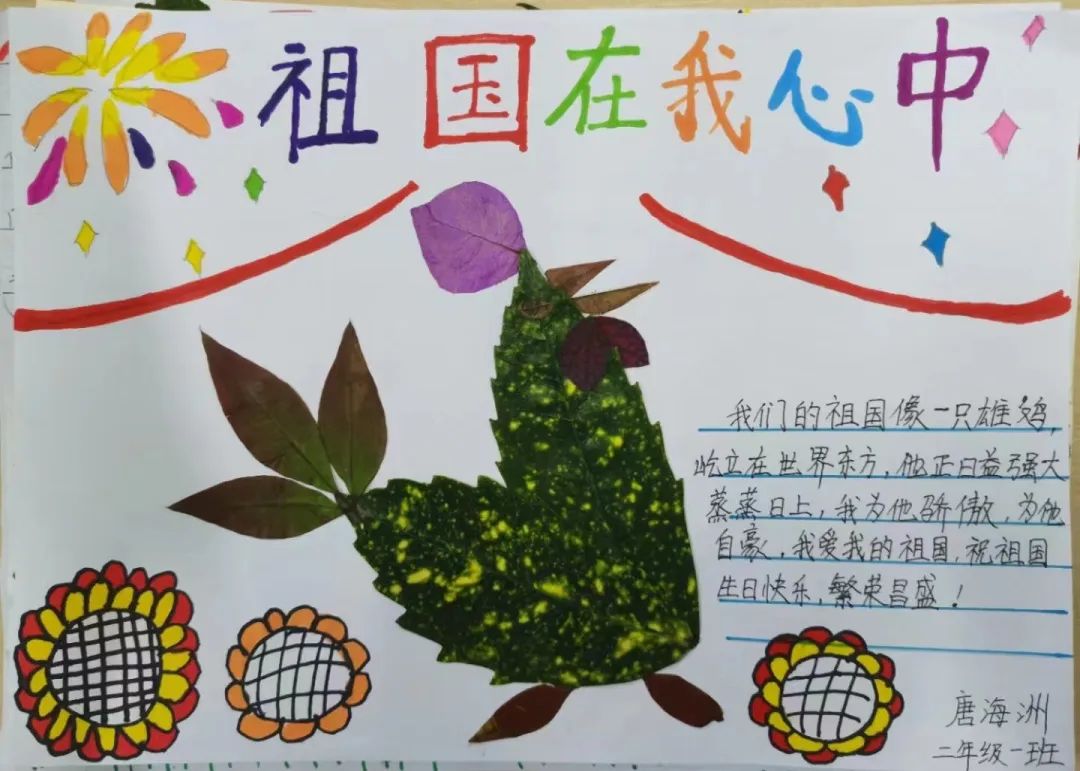 祖国在我心中
我们的祖国像一只雄鸡，
屹立在世界东方，他正日益强大
蒸蒸日上，我为他骄傲，为他
自豪，我爱我的祖国，祝祖国
生日快乐，繁荣昌盛！
唐海洲
二年级一班